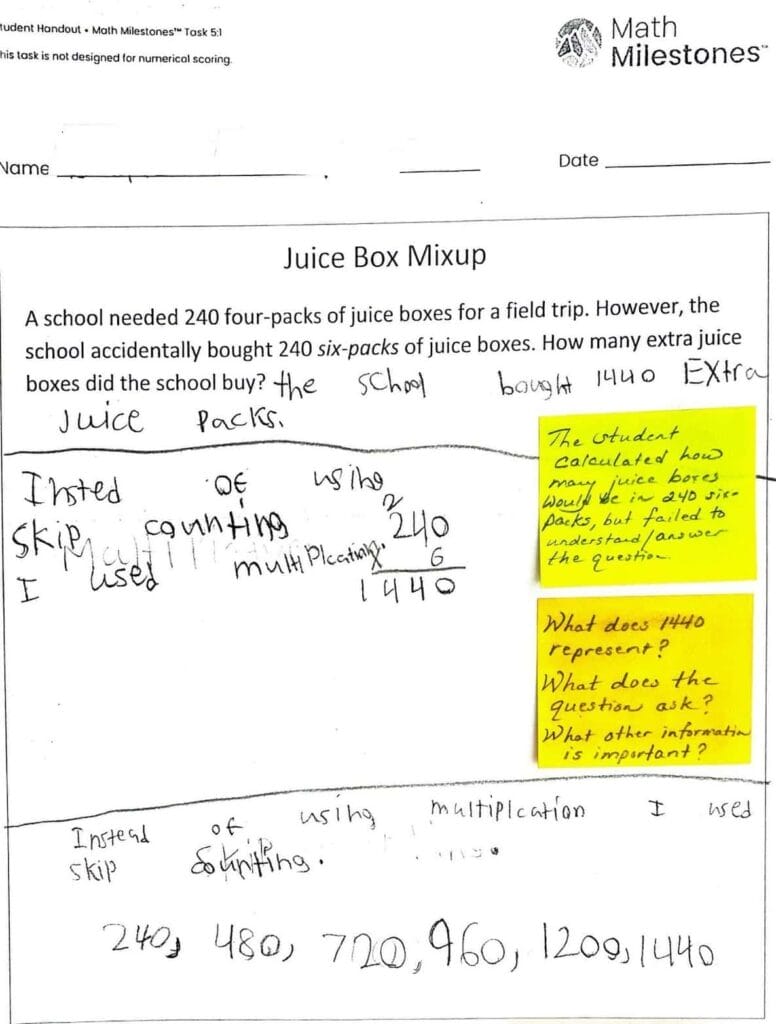 tudent Handout • Math Milestones™ Task 5:1
his task is not designed for numerical scoring.
Math
Milestones™
Name
Date
Juice Box Mixup
A school needed 240 four-packs of juice boxes for a field trip. However, the
school accidentally bought 240 six-packs of juice boxes. How many extra juice
boxes did the school buy? the school bought 1440 Extra
Juice Packs.
The student
calculated how
many juice boxes
would be in 240 six-
packs, but failed to
understand/answer
the question.
Insted of using
skip counting
I used multiplcating.
2
240
6
1440
What does 1440
represent?
What does the
question ask?
What other informatin
is important?
Instead of using multiplcation I used
skip counting.
240, 480, 720, 960, 1200, 1440